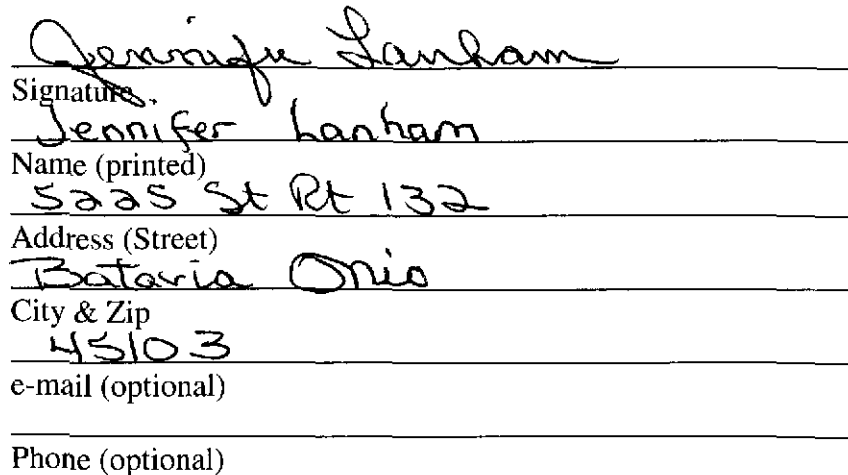 Jennifer Lanham
Signature
Jennifer Lanham
Name (printed)
5225 St Rt 132
Address (Street)
Batavia Ohio
City & Zip
45103
e-mail (optional)
Phone (optional)